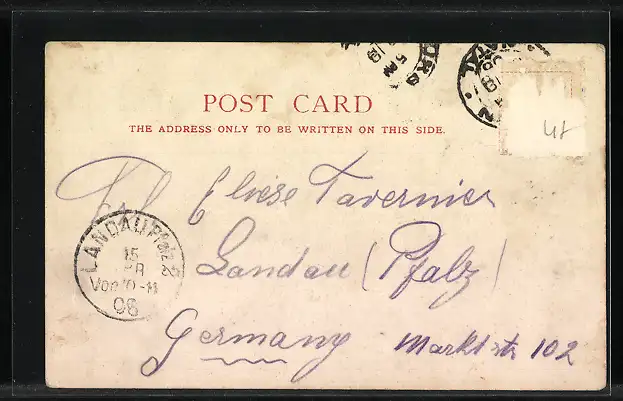 POST CARD
THE ADDRESS ONLY TO BE WRITTEN ON THIS SIDE.
Frl Eliese Tavernier
Landau (Pfalz)
Germany Marktstr 102
LANDAU Pfalz 2
15
Vor 10-11
06
NATAL